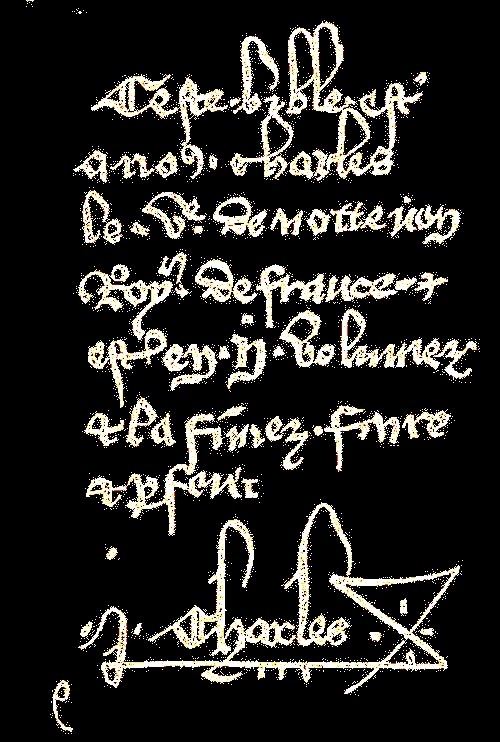 Ceste bible est
a nous charles
le Ve de nottre non
Roy de france et
est en ii volumez
et la fimez faire
et pfere
Charles